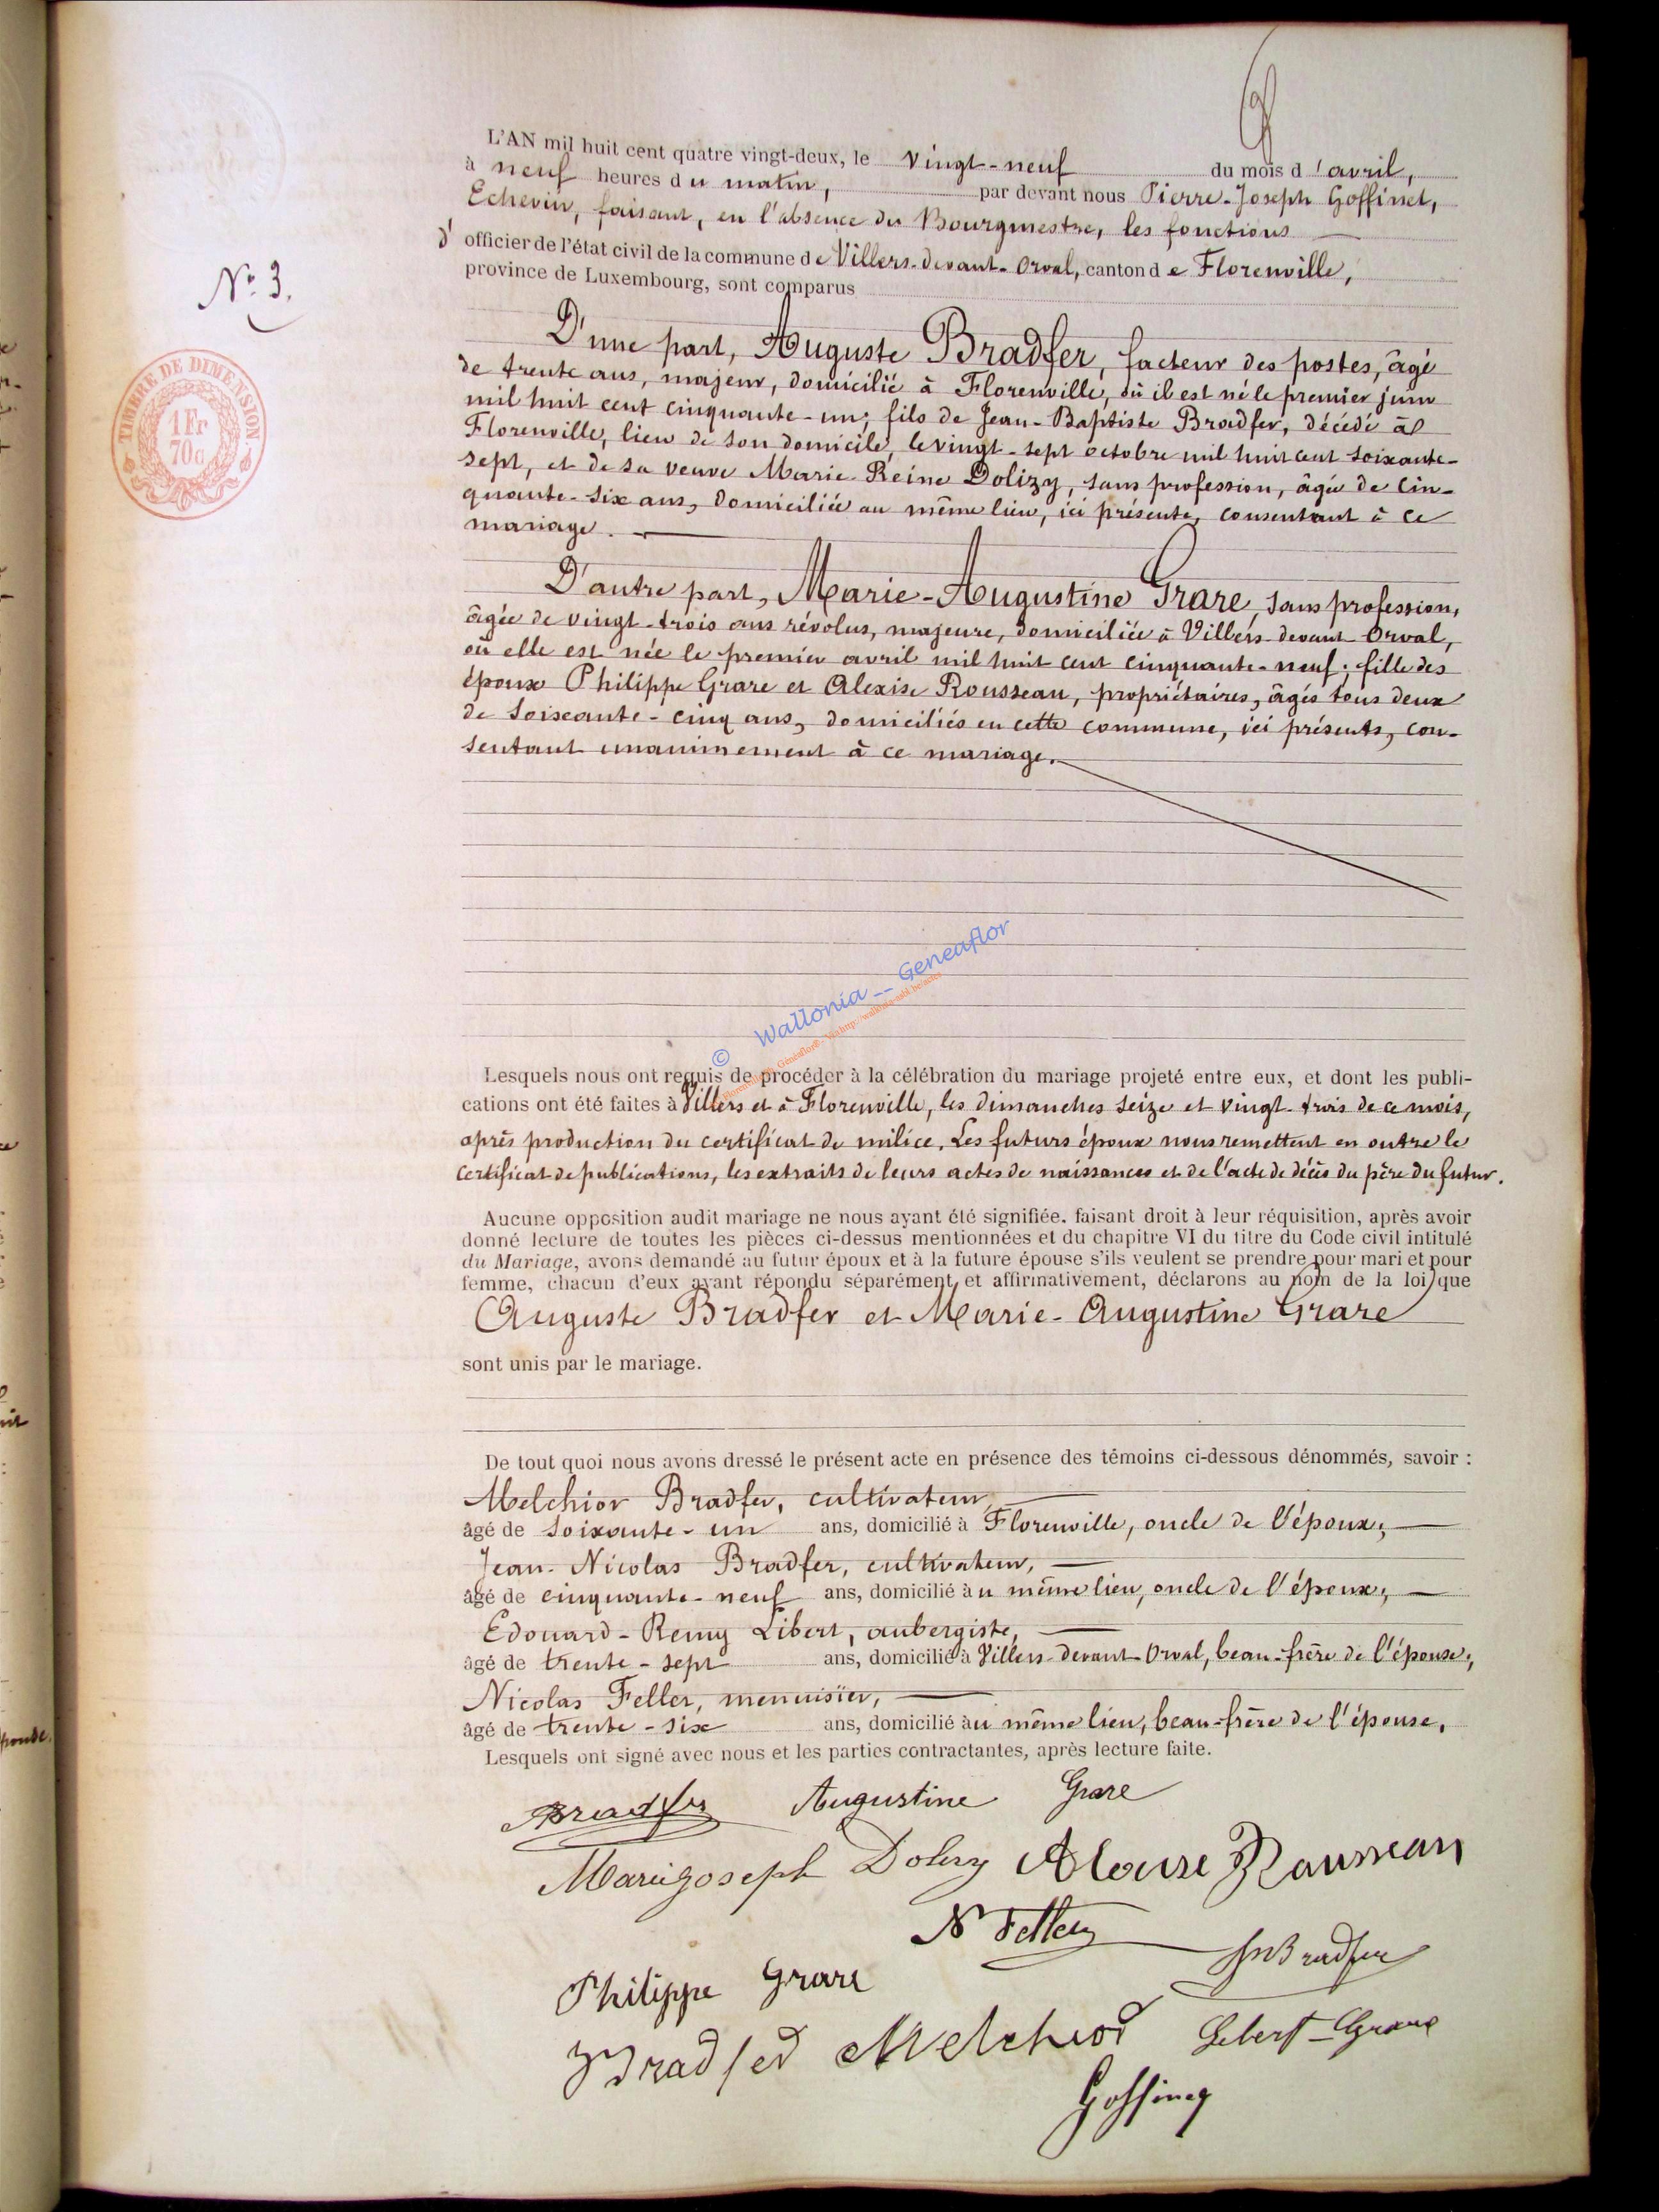 L'AN mil huit cent quatre vingt-deux, le vingt-neuf du mois d'avril,
à neuf heures du matin, par devant nous Pierre-Joseph Goffinet,
Echevin, faisant, en l'absence du Bourgmestre, les fonctions
d'officier de l'état civil de la commune de Villers-devant-Orval, canton de Florenville,
province de Luxembourg, sont comparus
N° 3.
TIMBRE DE DIMENSION
1 Fr
70c
D'une part, Auguste Bradfer, facteur des postes, âgé
de trente ans, majeur, domicilié à Florenville, où il est né le premier juin
mil huit cent cinquante-un; fils de Jean-Baptiste Bradfer, décédé à
Florenville, lieu de son domicile, le vingt-sept octobre mil huit cent soixante-
sept, et de sa veuve Marie-Reine Dolizy, sans profession, âgée de cin-
quante-six ans, domiciliée au même lieu, ici présente, consentant à ce
mariage.
D'autre part, Marie-Augustine Grare, sans profession,
âgée de vingt-trois ans révolus, majeure, domiciliée à Villers-devant-Orval,
où elle est née le premier avril mil huit cent cinquante-neuf; fille des
époux Philippe Grare et Alexise Rousseau, propriétaires, âgés tous deux
de soixante-cinq ans, domiciliés en cette commune, ici présents, con-
sentant unanimement à ce mariage.
© Wallonia -- Geneaflor
Lesquels nous ont requis de procéder à la célébration du mariage projeté entre eux, et dont les publi-
cations ont été faites à Villers et à Florenville, les dimanches seize et vingt-trois de ce mois,
après production du certificat de milice. Les futurs époux nous remettent en outre le
certificat de publications, les extraits de leurs actes de naissances et de l'acte de décès du père du futur.
Aucune opposition audit mariage ne nous ayant été signifiée, faisant droit à leur réquisition, après avoir
donné lecture de toutes les pièces ci-dessus mentionnées et du chapitre VI du titre du Code civil intitulé
du Mariage, avons demandé au futur époux et à la future épouse s'ils veulent se prendre pour mari et pour
femme, chacun d'eux ayant répondu séparément et affirmativement, déclarons au nom de la loi que
Auguste Bradfer et Marie-Augustine Grare
sont unis par le mariage.
De tout quoi nous avons dressé le présent acte en présence des témoins ci-dessous dénommés, savoir :
Melchior Bradfer, cultivateur,
âgé de soixante-un ans, domicilié à Florenville, oncle de l'époux;
Jean-Nicolas Bradfer, cultivateur,
âgé de cinquante-neuf ans, domicilié au même lieu, oncle de l'époux;
Edouard-Remy Libert, aubergiste,
âgé de trente-sept ans, domicilié à Villers-devant-Orval, beau-frère de l'épouse;
Nicolas Feller, menuisier,
âgé de trente-six ans, domicilié au même lieu, beau-frère de l'épouse.
Lesquels ont signé avec nous et les parties contractantes, après lecture faite.
Bradfer Augustine Grare
Marie Joseph Dolizy Alexise Rousseau
N Feller
JN Bradfer
Philippe Grare
Bradfer Melchior Libert-Grare
Goffinet